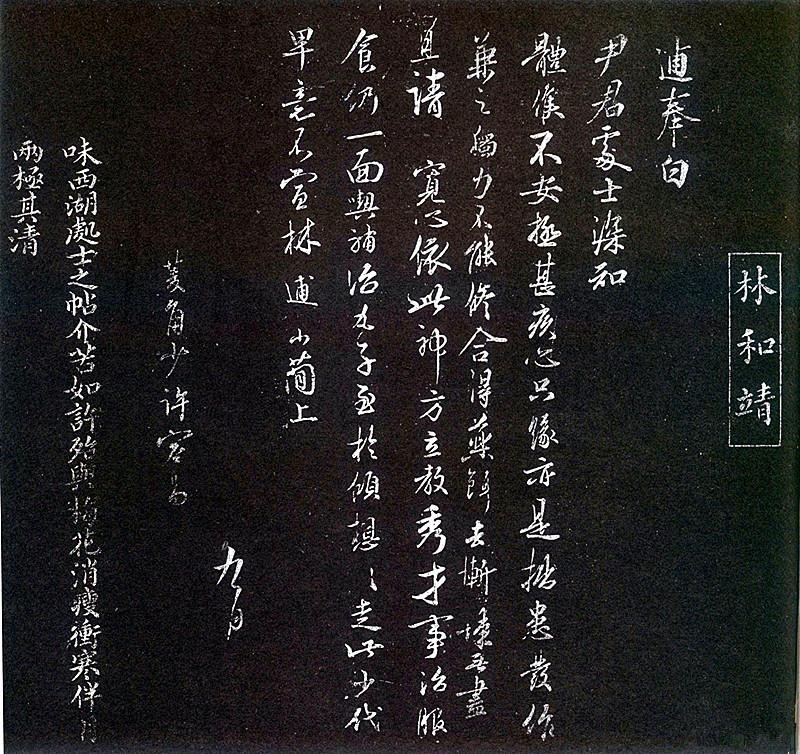 林和靖
逋奉白
尹君處士深知
體候不安極甚疚心只緣亦是舊患發作
兼之觸力不能修合得藥餌去慚悚無盡
且請 寬心依此神方立教秀才事治服
食仍一面與補治丸子至於傾想〻走此少代
卑意不宣林逋小簡上
九月
菱角少許容易
味西湖處士之帖介苦如許殆與梅花消瘦衝寒伴月
兩極其清